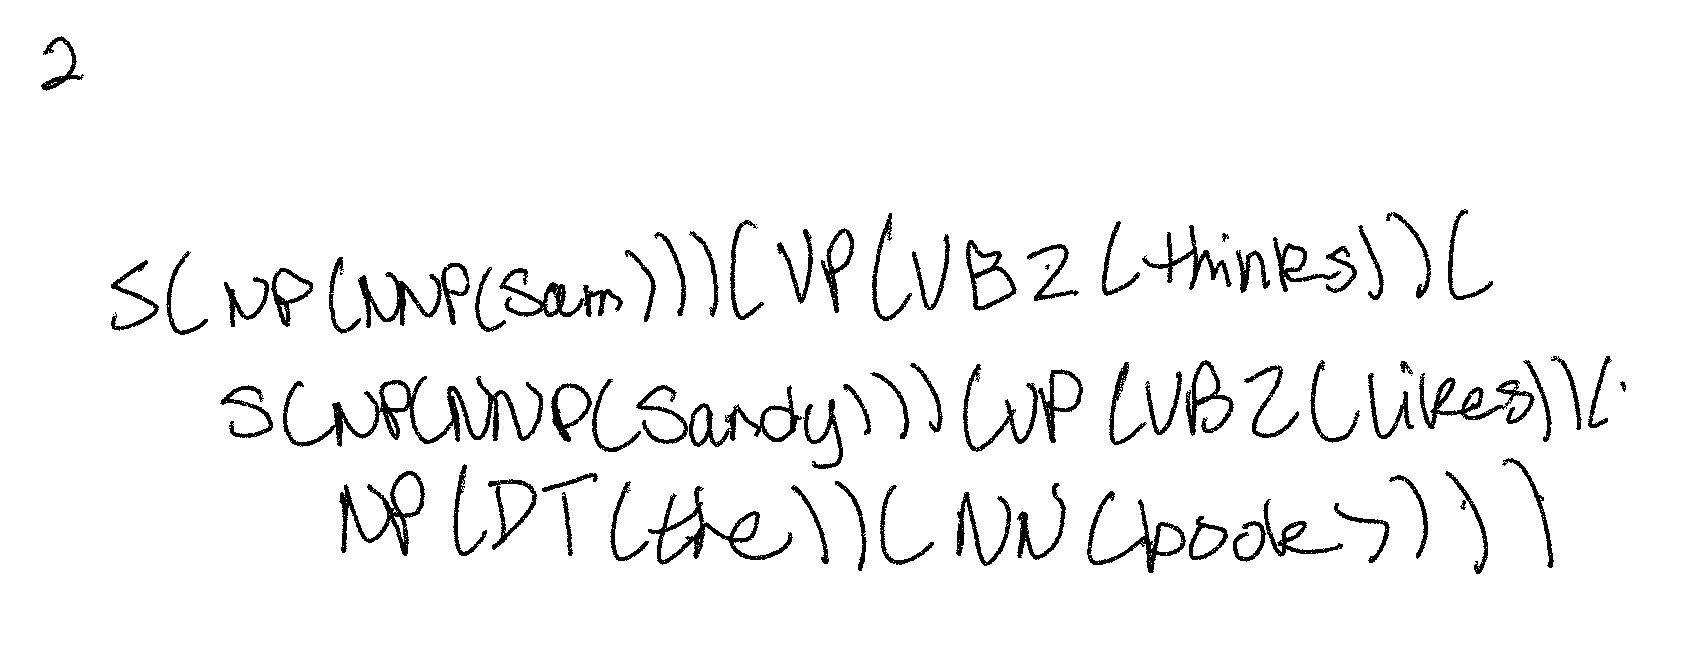 2
S(NP(NNP(Sam)))(VP(VBZ(thinks))(
S(NP(NNP(Sandy)))(VP(VBZ(likes))(
NP(DT(the))(NN(book)))))